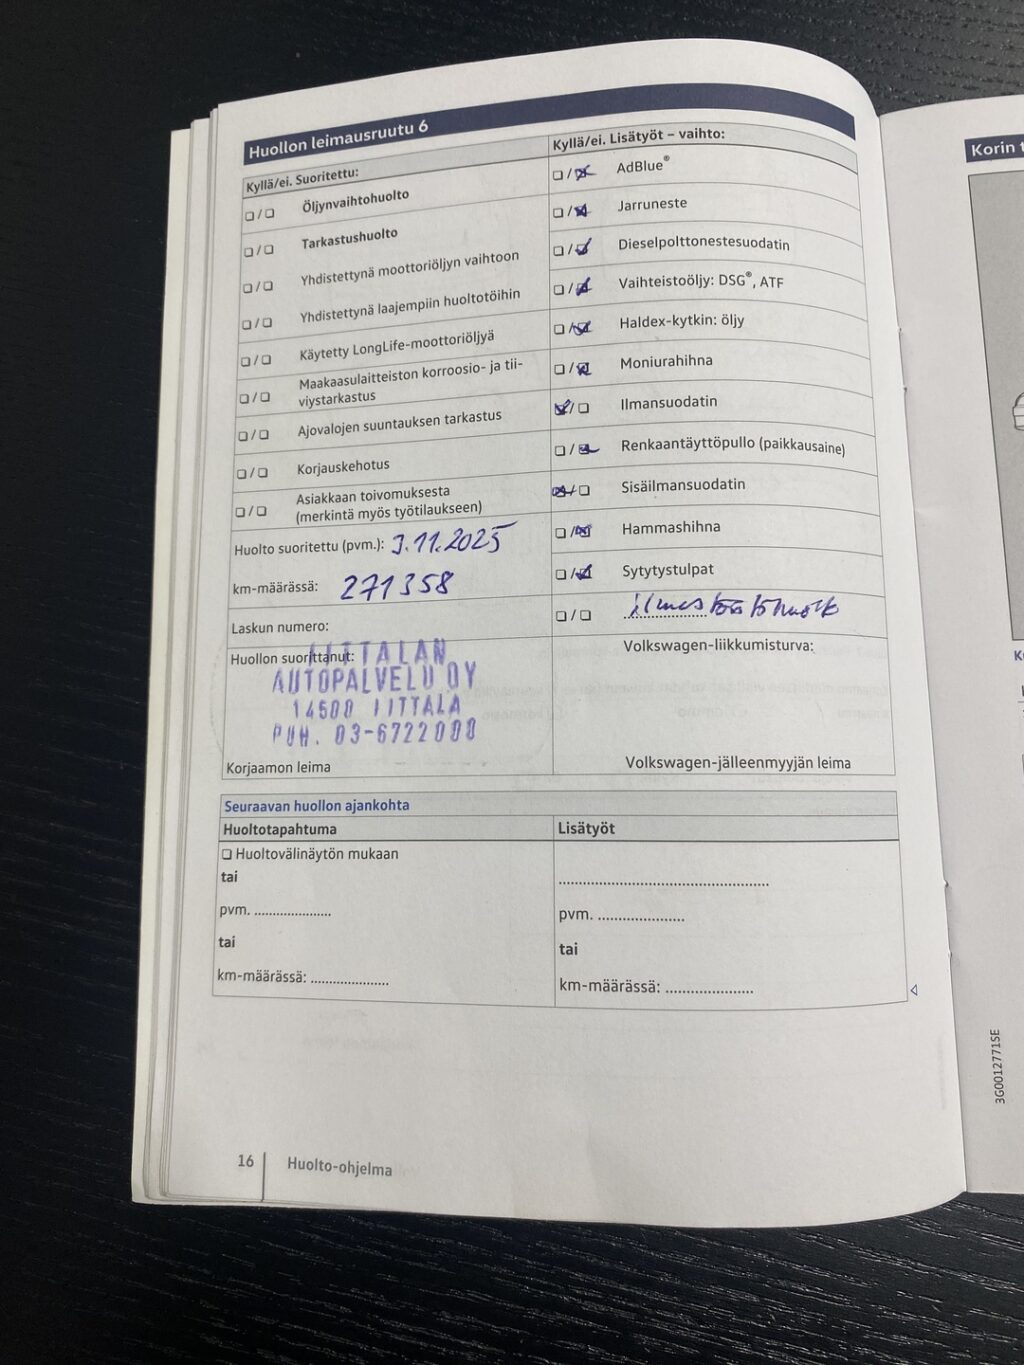 Huollon leimausruutu 6
Kyllä/ei. Suoritettu:
❑ / ❑ Öljynvaihtohuolto
❑ / ❑ Tarkastushuolto
❑ / ❑ Yhdistettynä moottoriöljyn vaihtoon
❑ / ❑ Yhdistettynä laajempiin huoltotöihin
❑ / ❑ Käytetty LongLife-moottoriöljyä
❑ / ❑ Maakaasulaitteiston korroosio- ja tii-
viystarkastus
❑ / ❑ Ajovalojen suuntauksen tarkastus
❑ / ❑ Korjauskehotus
❑ / ❑ Asiakkaan toivomuksesta
(merkintä myös työtilaukseen)
Huolto suoritettu (pvm.): 3.11.2025
km-määrässä: 271358
Laskun numero:
Huollon suorittanut:
IITTALAN
AUTOPALVELU OY
14500 IITTALA
PUH. 03-6722000
Korjaamon leima
Kyllä/ei. Lisätyöt – vaihto:
❑ / ☒ AdBlue®
❑ / ☒ Jarruneste
❑ / ☒ Dieselpolttonestesuodatin
❑ / ☒ Vaihteistoöljy: DSG®, ATF
❑ / ☒ Haldex-kytkin: öljy
❑ / ☒ Moniurahihna
☒ / ❑ Ilmansuodatin
❑ / ☒ Renkaantäyttöpullo (paikkausaine)
☒ / ❑ Sisäilmansuodatin
❑ / ☒ Hammashihna
❑ / ☒ Sytytystulpat
❑ / ❑
Volkswagen-liikkumisturva:
Volkswagen-jälleenmyyjän leima
Seuraavan huollon ajankohta
Huoltotapahtuma
❑ Huoltovälinäytön mukaan
tai
pvm. ......................
tai
km-määrässä: ......................
Lisätyöt
............................................................
pvm. ......................
tai
km-määrässä: ......................
16 Huolto-ohjelma
Korin
3G0012771SE